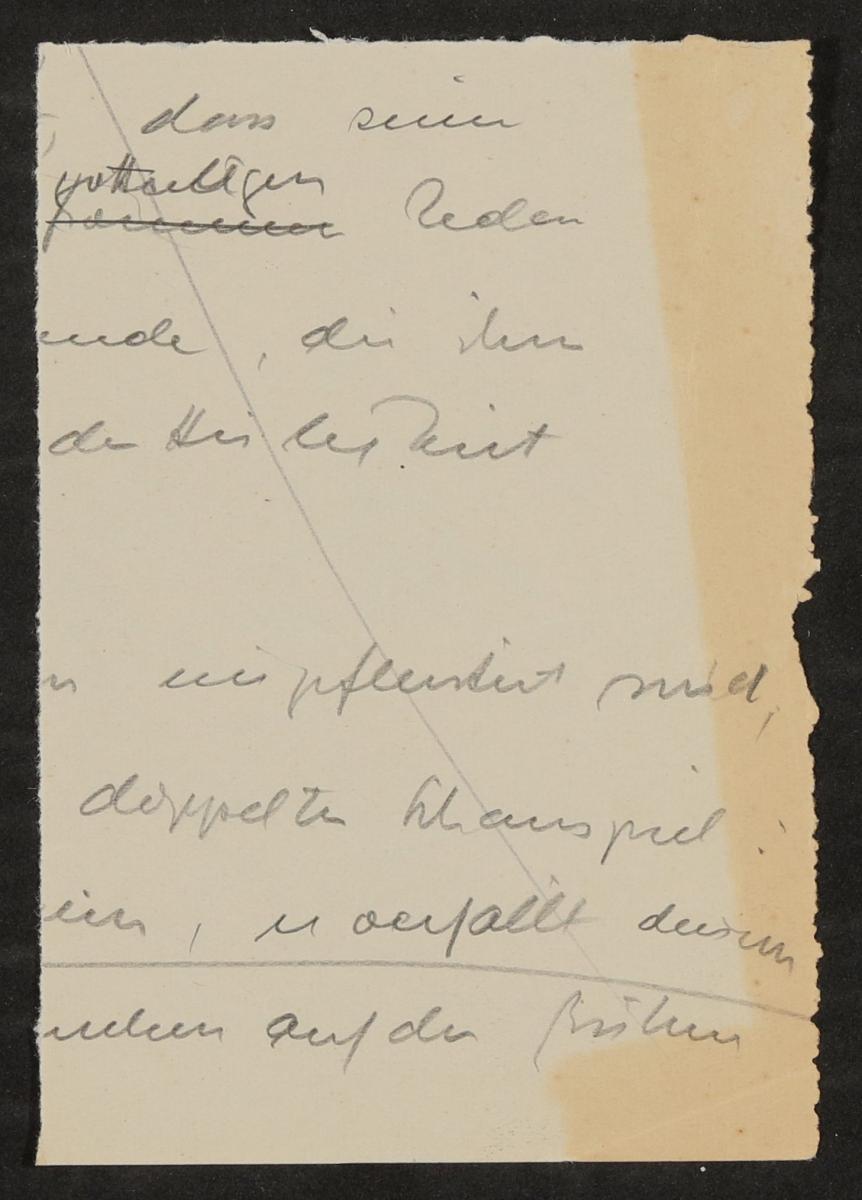 , dass seine
gottseligen
Reden
ende, die ihm
der Heiligkeit
n eingepflanzt sind,
doppelten Schauspiel :
ein, er verfällt diesem
auf der Bühne